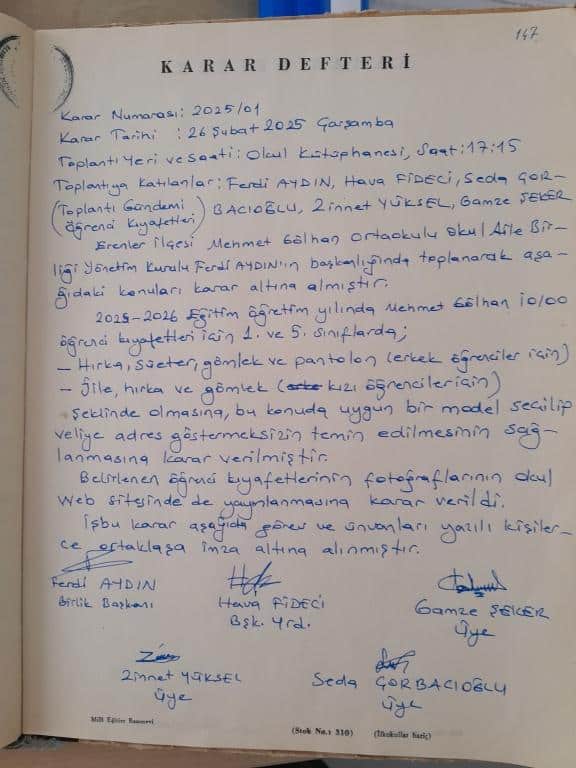 147
KARAR DEFTERİ
Karar Numarası: 2025/01
Karar Tarihi : 26 Şubat 2025 Çarşamba
Toplantı Yeri ve Saati: Okul Kütüphanesi, Saat: 17:15
Toplantıya Katılanlar: Ferdi AYDIN, Hava FİDECİ, Seda ÇOR-
(Toplantı Gündemi Öğrenci Kıyafetleri) BACIOĞLU, Zinnet YÜKSEL, Gamze ŞEKER
Erenler İlçesi Mehmet Gölhan Ortaokulu Okul Aile Bir-
liği Yönetim Kurulu Ferdi AYDIN'ın başkanlığında toplanarak aşa-
ğıdaki konuları karar altına almıştır.
2025-2026 Eğitim öğretim yılında Mehmet Gölhan İO/OO
öğrenci kıyafetleri için 1. ve 5. sınıflarda;
– Hırka, süeter, gömlek ve pantolon (erkek öğrenciler için)
– Jile, hırka ve gömlek (kızı öğrenciler için)
Şeklinde olmasına, bu konuda uygun bir model seçilip
veliye adres göstermeksizin temin edilmesinin sağ-
lanmasına karar verilmiştir.
Belirlenen öğrenci kıyafetlerinin fotoğraflarının okul
web sitesinde de yayınlanmasına karar verildi.
İşbu karar aşağıda görev ve ünvanları yazılı kişiler-
ce ortaklaşa imza altına alınmıştır.
Ferdi AYDIN
Birlik Başkanı
Hava FİDECİ
Bşk. Yrd.
Gamze ŞEKER
Üye
Zinnet YÜKSEL
Üye
Seda ÇORBACIOĞLU
Üye
Milli Eğitim Basımevi
(Stok No.: 310) (İlkokullar Hariç)